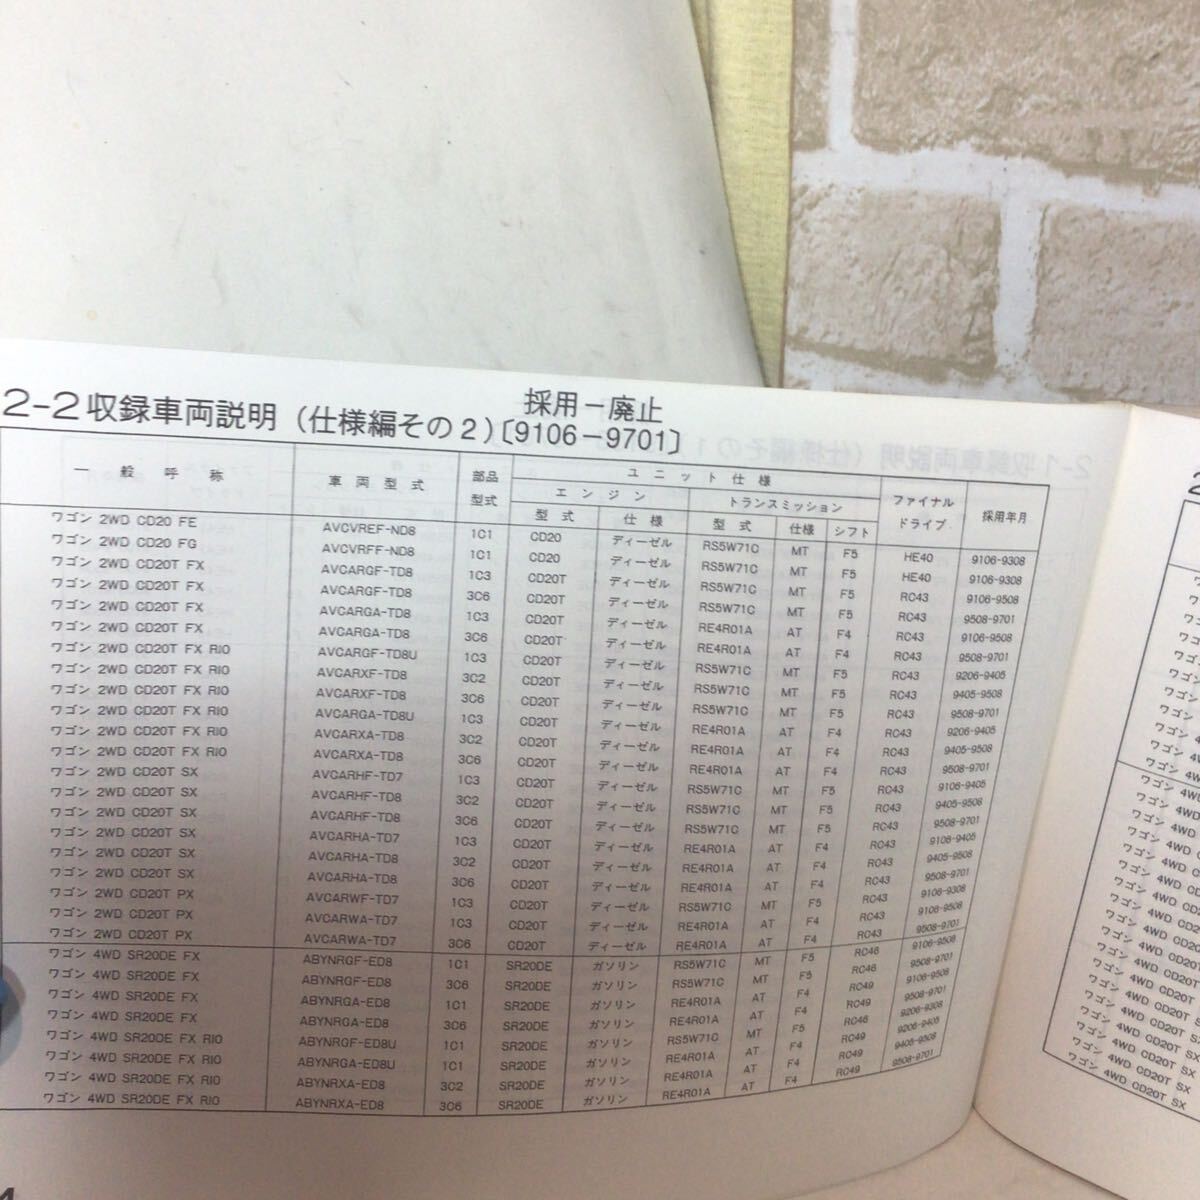 2-2収録車両説明（仕様編その2）〔9106-9701〕
採用-廃止
一般呼称 車両型式 部品型式 ユニット仕様 ファイナルドライブ 採用年月
エンジン トランスミッション
型式 仕様 型式 仕様 シフト
ワゴン 2WD CD20 FE AVCVREF-ND8 1C1 CD20 ディーゼル RS5W71C MT F5 HE40 9106-9308
ワゴン 2WD CD20 FG AVCVRFF-ND8 1C1 CD20 ディーゼル RS5W71C MT F5 HE40 9106-9308
ワゴン 2WD CD20T FX AVCARGF-TD8 1C3 CD20T ディーゼル RS5W71C MT F5 RC43 9106-9508
ワゴン 2WD CD20T FX AVCARGF-TD8 3C6 CD20T ディーゼル RS5W71C MT F5 RC43 9508-9701
ワゴン 2WD CD20T FX AVCARGA-TD8 1C3 CD20T ディーゼル RE4R01A AT F4 RC43 9106-9508
ワゴン 2WD CD20T FX AVCARGA-TD8 3C6 CD20T ディーゼル RE4R01A AT F4 RC43 9508-9701
ワゴン 2WD CD20T FX RIO AVCARGF-TD8U 1C3 CD20T ディーゼル RS5W71C MT F5 RC43 9206-9405
ワゴン 2WD CD20T FX RIO AVCARXF-TD8 3C2 CD20T ディーゼル RS5W71C MT F5 RC43 9405-9508
ワゴン 2WD CD20T FX RIO AVCARXF-TD8 3C6 CD20T ディーゼル RS5W71C MT F5 RC43 9508-9701
ワゴン 2WD CD20T FX RIO AVCARGA-TD8U 1C3 CD20T ディーゼル RE4R01A AT F4 RC43 9206-9405
ワゴン 2WD CD20T FX RIO AVCARXA-TD8 3C2 CD20T ディーゼル RE4R01A AT F4 RC43 9405-9508
ワゴン 2WD CD20T FX RIO AVCARXA-TD8 3C6 CD20T ディーゼル RE4R01A AT F4 RC43 9508-9701
ワゴン 2WD CD20T SX AVCARHF-TD7 1C3 CD20T ディーゼル RS5W71C MT F5 RC43 9106-9405
ワゴン 2WD CD20T SX AVCARHF-TD8 3C2 CD20T ディーゼル RS5W71C MT F5 RC43 9405-9508
ワゴン 2WD CD20T SX AVCARHF-TD8 3C6 CD20T ディーゼル RS5W71C MT F5 RC43 9508-9701
ワゴン 2WD CD20T SX AVCARHA-TD7 1C3 CD20T ディーゼル RE4R01A AT F4 RC43 9106-9405
ワゴン 2WD CD20T SX AVCARHA-TD8 3C2 CD20T ディーゼル RE4R01A AT F4 RC43 9405-9508
ワゴン 2WD CD20T SX AVCARHA-TD8 3C6 CD20T ディーゼル RE4R01A AT F4 RC43 9508-9701
ワゴン 2WD CD20T PX AVCARWF-TD7 1C3 CD20T ディーゼル RS5W71C MT F5 RC43 9106-9308
ワゴン 2WD CD20T PX AVCARWA-TD7 1C3 CD20T ディーゼル RE4R01A AT F4 RC43 9106-9508
ワゴン 2WD CD20T PX AVCARWA-TD7 3C6 CD20T ディーゼル RE4R01A AT F4 RC43 9508-9701
ワゴン 4WD SR20DE FX ABYNRGF-ED8 1C1 SR20DE ガソリン RS5W71C MT F5 RC46 9106-9508
ワゴン 4WD SR20DE FX ABYNRGF-ED8 3C6 SR20DE ガソリン RS5W71C MT F5 RC46 9508-9701
ワゴン 4WD SR20DE FX ABYNRGA-ED8 1C1 SR20DE ガソリン RE4R01A AT F4 RC49 9106-9508
ワゴン 4WD SR20DE FX ABYNRGA-ED8 3C6 SR20DE ガソリン RE4R01A AT F4 RC49 9508-9701
ワゴン 4WD SR20DE FX RIO ABYNRGF-ED8U 1C1 SR20DE ガソリン RS5W71C MT F5 RC46 9206-9308
ワゴン 4WD SR20DE FX RIO ABYNRGA-ED8U 1C1 SR20DE ガソリン RE4R01A AT F4 RC49 9206-9405
ワゴン 4WD SR20DE FX RIO ABYNRXA-ED8 3C2 SR20DE ガソリン RE4R01A AT F4 RC49 9405-9508
ワゴン 4WD SR20DE FX RIO ABYNRXA-ED8 3C6 SR20DE ガソリン RE4R01A AT F4 RC49 9508-9701